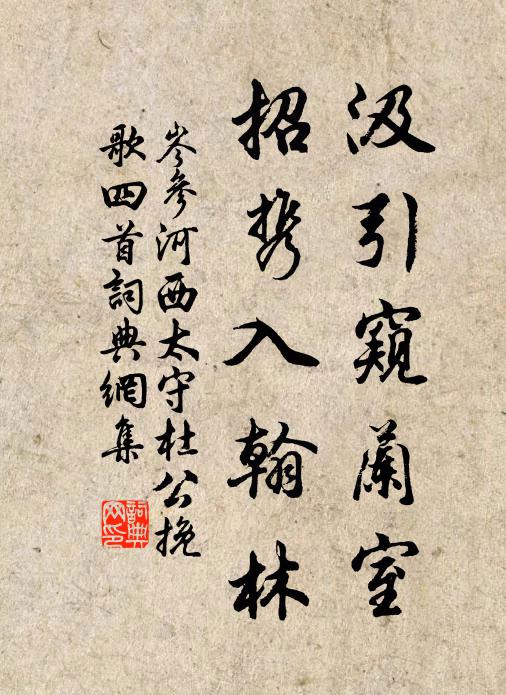 汲引窺蘭室
招携入翰林
岑參河西太守杜公挽
歌四首詞典網集
詞典網印